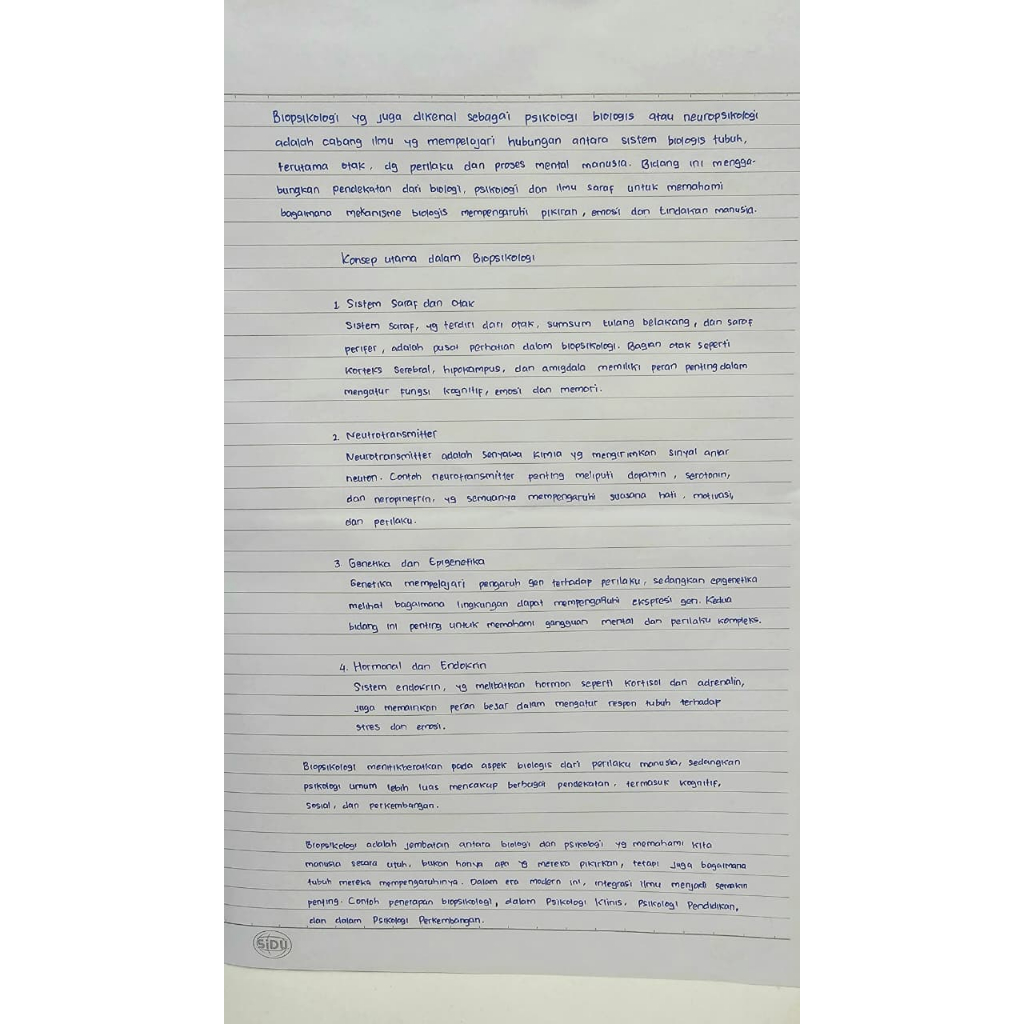 Biopsikologi yg juga dikenal sebagai psikologi biologis atau neuropsikologi
adalah cabang ilmu yg mempelajari hubungan antara sistem biologis tubuh,
terutama otak, dg perilaku dan proses mental manusia. Bidang ini mengga-
bungkan pendekatan dari biologi, psikologi dan ilmu saraf untuk memahami
bagaimana mekanisme biologis mempengaruhi pikiran, emosi dan tindakan manusia.
Konsep utama dalam Biopsikologi
1. Sistem Saraf dan Otak
Sistem saraf, yg terdiri dari otak, sumsum tulang belakang, dan saraf
perifer, adalah pusat perhatian dalam biopsikologi. Bagian otak seperti
korteks serebral, hipokampus, dan amigdala memiliki peran penting dalam
mengatur fungsi kognitif, emosi dan memori.
2. Neutrotransmitter
Neurotransmitter adalah senyawa kimia yg mengirimkan sinyal antar
neuron. Contoh neurotransmitter penting meliputi dopamin, serotonin,
dan noropinefrin, yg semuanya mempengaruhi suasana hati, motivasi,
dan perilaku.
3 Genetika dan Epigenetika
Genetika mempelajari pengaruh gen terhadap perilaku, sedangkan epigenetika
melihat bagaimana lingkangan dapat mempengaruhi ekspresi gen. Kedua
bidang ini penting untuk memahami gangguan mental dan perilaku kompleks.
4. Hormonal dan Endokrin
Sistem endokrin, yg melibatkan hormon seperti kortisol dan adrenalin,
juga memainkan peran besar dalam mengatur respon tubuh terhadap
stres dan emosi.
Biopsikologi menitikberatkan pada aspek biologis dari perilaku manusia, sedangkan
psikologi umum lebih luas mencakup berbagai pendekatan, termasuk kognitif,
sosial, dan perkembangan.
Biopsikologi adalah jembatan antara biologi dan psikologi yg memahami kita
manusia secara utuh, bukan hanya apa yg mereka pikirkan, tetapi juga bagaimana
tubuh mereka mempengaruhinya. Dalam era modern ini, integrasi ilmu menjadi semakin
penting. Contoh penerapan biopsikologi, dalam Psikologi Klinis, Psikologi Pendidikan,
dan dalam Psikologi Perkembangan.
SIDU